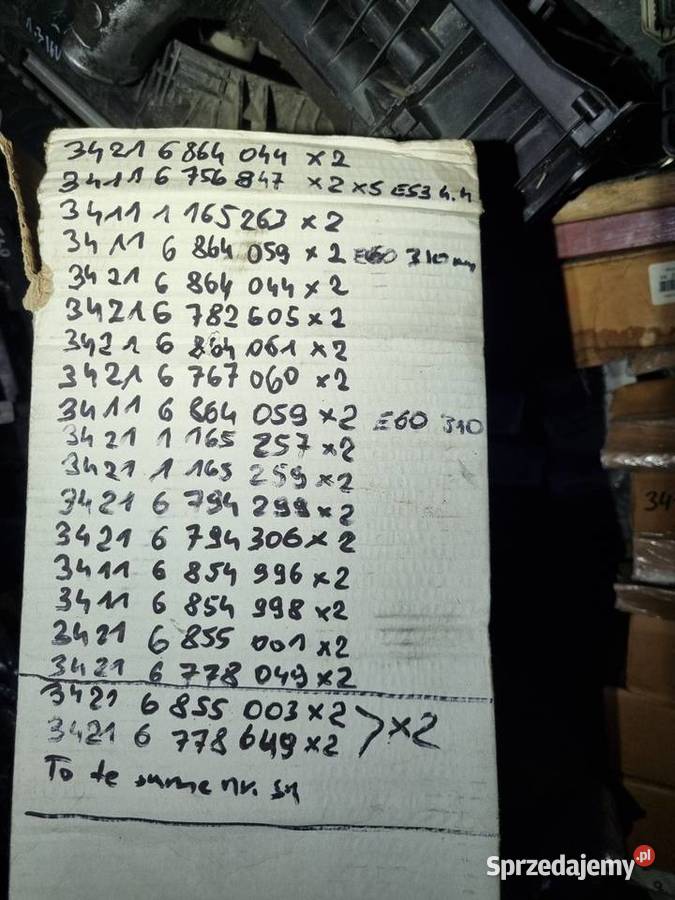 3421 6 864 044 x2
3411 6 756 847 x2 x5 E53 4.4
3411 1 165263 x2
3411 6 864 059 x2 E60 310 km
3421 6 864 044 x2
3421 6 782 605 x2
3421 6 864 061 x2
3421 6 767 060 x2
3411 6 864 059 x2 E60 310
3421 1 165 257 x2
3421 1 165 259 x2
3421 6 794 299 x2
3421 6 794 306 x2
3411 6 854 996 x2
3411 6 854 998 x2
3421 6 855 001 x2
3421 6 778 049 x2
3421 6 855 003 x2
3421 6 778 649 x2
> x2
To te same nr. są
34
Sprzedajemy.pl